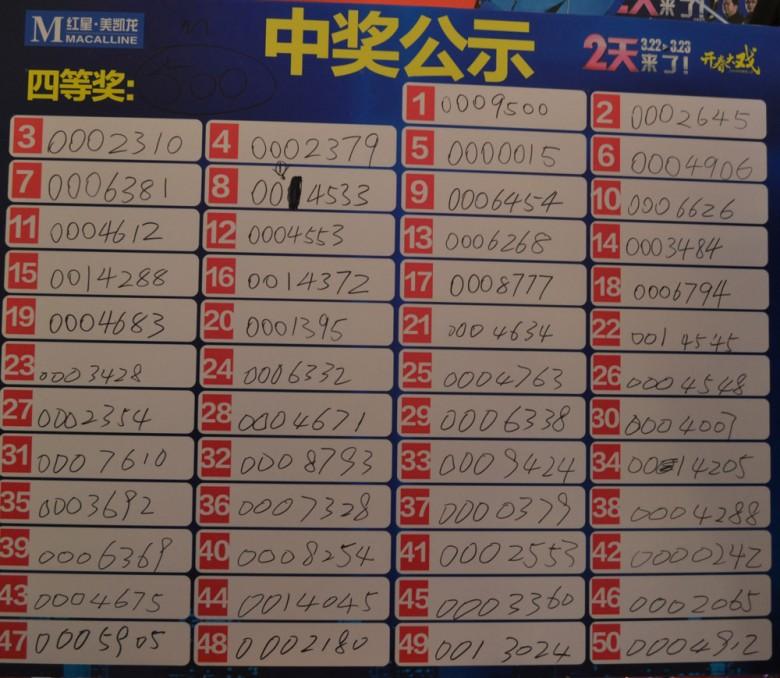 M 红星·美凯龙
MACALLINE
中奖公示
2天来了!
3.22-3.23
开春大戏
四等奖:
500
1 0009500
2 0002645
3 0002310
4 0002379
5 0000015
6 0004906
7 0006381
8 0014533
9 0006454
10 0006626
11 0004612
12 0004553
13 0006268
14 0003484
15 0014288
16 0014372
17 0008777
18 0006794
19 0004683
20 0001395
21 0004634
22 0014545
23 0003428
24 0006332
25 0004763
26 0004548
27 0002354
28 0004671
29 0006338
30 0004007
31 0007610
32 0008793
33 0009424
34 0014205
35 0003692
36 0007328
37 0000379
38 0004288
39 0006369
40 0008254
41 0002553
42 0000242
43 0004675
44 0014045
45 0003360
46 0002065
47 0005905
48 0002180
49 0013024
50 0004912